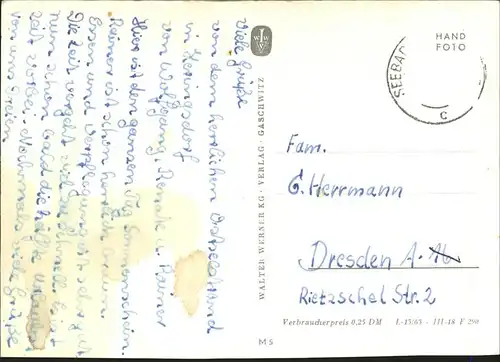 Viele Grüße
von dem herrlichen Ostseestrand
in Zeringsdorf
von Wolfgang, Renate u. Rainer
Hier ist den ganzen Tag Sonnenschein.
Reiner ist schon herrlich braun.
Essen und Verpflegung ist sehr gut
Die Zeit vergeht viel zu schnell. Es ist
nun schon bald die halbe Urlaubs-
zeit vorbei. Nochmals viele Grüße
von uns Dreien
WALTER WERNER KG · VERLAG · GASCHWITZ
HAND
FOTO
SEEBAD
C
Fam.
G. Herrmann
Dresden A.
Rietzschel Str. 2
Verbraucherpreis 0,25 DM I-15/65 - III-18 F 290
M 5